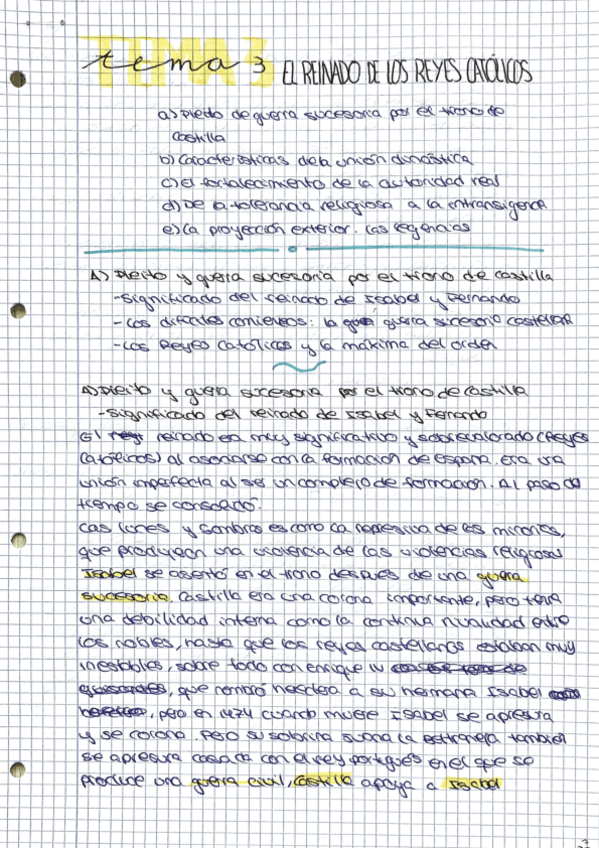 tema 3 EL REINADO DE LOS REYES CATÓLICOS
a) Pleito de guerra sucesoria por el trono de
Castilla
b) Características de la unión dinástica
c) el fortalecimiento de la autoridad real
d) De la tolerancia religiosa a la intransigencia
e) La proyección exterior. Las regencias
A) Pleito y guerra sucesoria por el trono de Castilla
- Significado del reinado de Isabel y Fernando
- Los difíciles comienzos: la guerra sucesoria castellana
- Los Reyes Católicos y la máxima del orden
A) Pleito y guerra sucesoria por el trono de Castilla
- Significado del reinado de Isabel y Fernando
El reinado era muy significativo y sobrevalorado (Reyes
Católicos) al asociarse con la formación de España. Era una
unión imperfecta al ser un complejo de formación. Al paso del
tiempo se consolidó.
Las luces y sombras es como la represiva de las minorías,
que produjeron una violencia de las violencias religiosas
Isabel se asentó en el trono después de una guerra
sucesoria. Castilla era una corona importante, pero tenía
una debilidad interna como la continua rivalidad entre
los nobles, hasta que los reyes castellanos estaban muy
inestables, sobre todo con enrique IV
, que nombró heredera a su hermana Isabel
, pero en 1474 cuando muere Isabel se apresura
y se corona. Pero su sobrina Juana La Beltraneja también
se apresura casada con el rey portugués en el que se
produce una guerra civil, Castilla apoya a Isabel